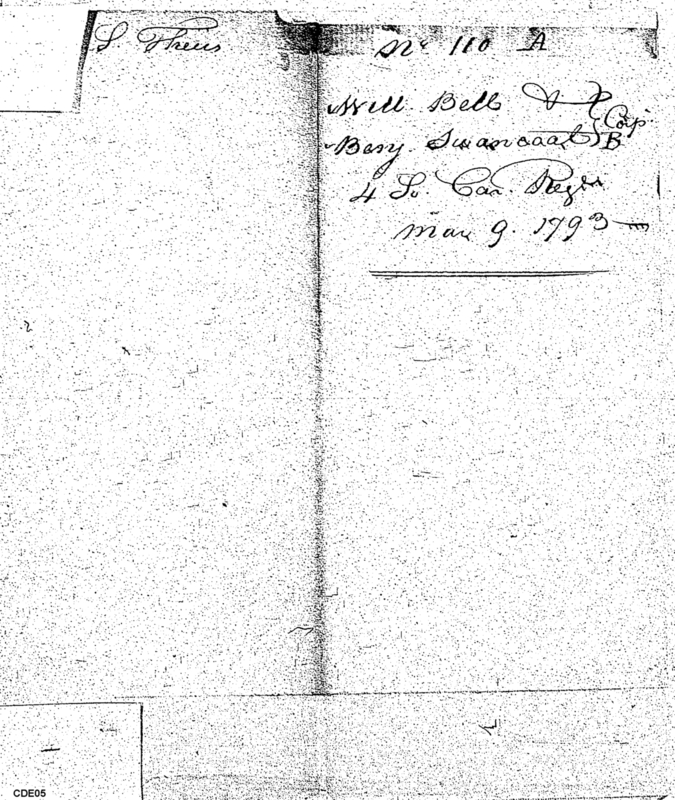 S. Theus
No 110 A
Will Bell &
Benj. Swancoat } Corp.
B
4 So Car. Regt
Mar 9. 1793
CDE05